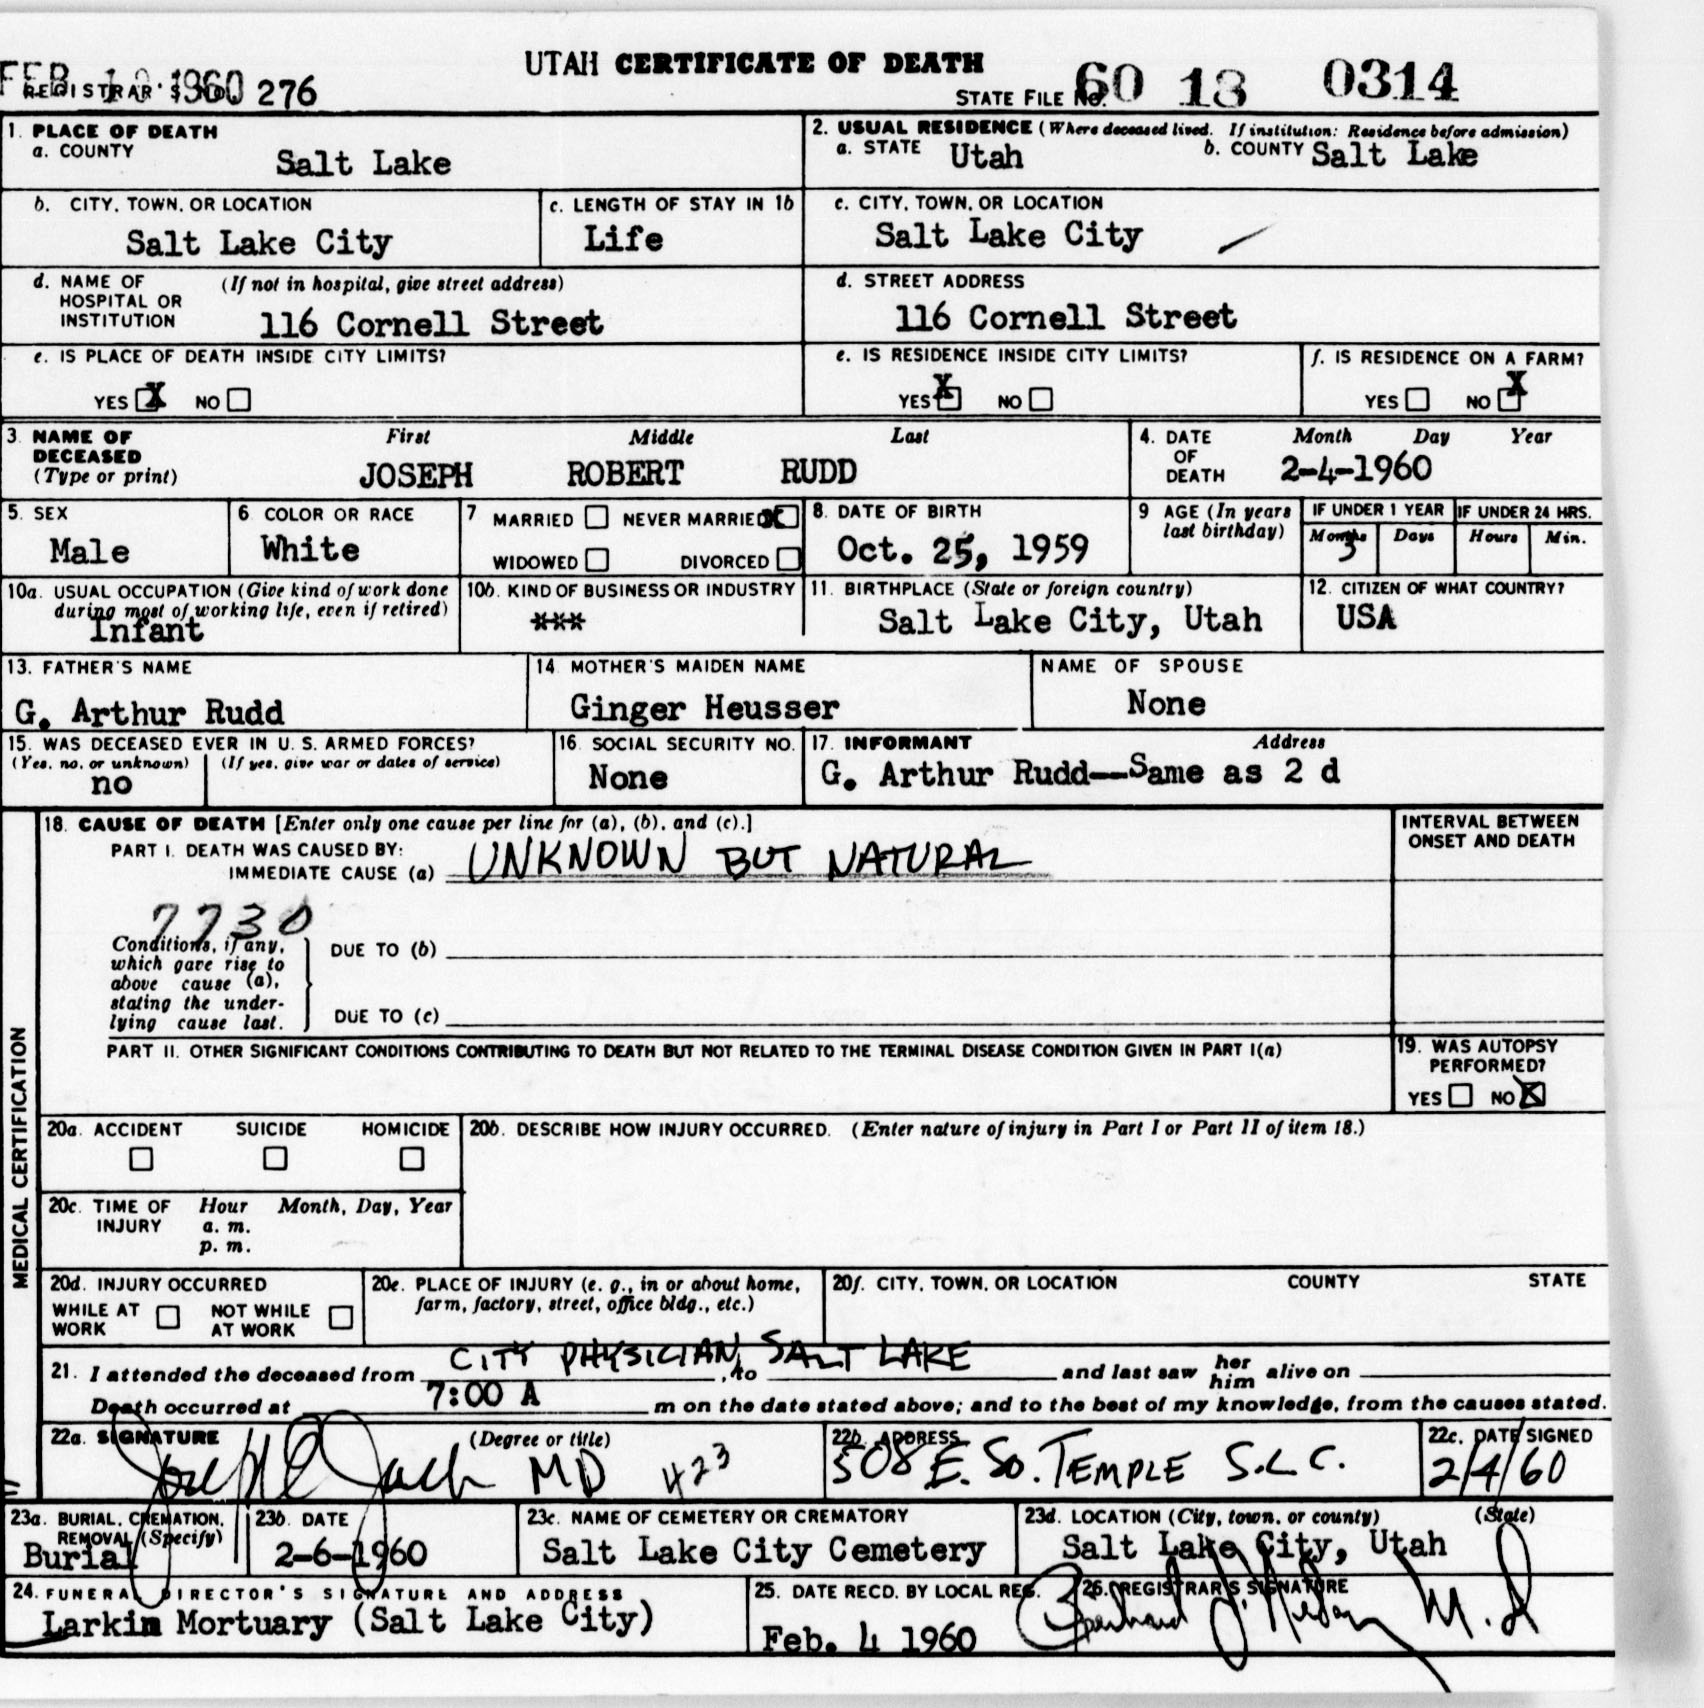 UTAH CERTIFICATE OF DEATH
FEB 10 1960
REGISTRAR'S NO. 276
STATE FILE NO. 60 18 0314
1. PLACE OF DEATH
a. COUNTY
Salt Lake
2. USUAL RESIDENCE (Where deceased lived. If institution: Residence before admission)
a. STATE Utah b. COUNTY Salt Lake
b. CITY, TOWN, OR LOCATION
Salt Lake City
c. LENGTH OF STAY IN 1b
Life
c. CITY, TOWN, OR LOCATION
Salt Lake City
d. NAME OF HOSPITAL OR INSTITUTION (If not in hospital, give street address)
116 Cornell Street
d. STREET ADDRESS
116 Cornell Street
e. IS PLACE OF DEATH INSIDE CITY LIMITS?
YES X NO
e. IS RESIDENCE INSIDE CITY LIMITS?
YES X NO
f. IS RESIDENCE ON A FARM?
YES NO X
3. NAME OF DECEASED (Type or print)
First Middle Last
JOSEPH ROBERT RUDD
4. DATE OF DEATH Month Day Year
2-4-1960
5. SEX
Male
6 COLOR OR RACE
White
7 MARRIED NEVER MARRIED X
WIDOWED DIVORCED
8. DATE OF BIRTH
Oct. 25, 1959
9 AGE (In years last birthday)
IF UNDER 1 YEAR IF UNDER 24 HRS.
Months Days Hours Min.
3
10a. USUAL OCCUPATION (Give kind of work done during most of working life, even if retired)
Infant
10b. KIND OF BUSINESS OR INDUSTRY
***
11. BIRTHPLACE (State or foreign country)
Salt Lake City, Utah
12. CITIZEN OF WHAT COUNTRY?
USA
13. FATHER'S NAME
G. Arthur Rudd
14 MOTHER'S MAIDEN NAME
Ginger Heusser
NAME OF SPOUSE
None
15. WAS DECEASED EVER IN U. S. ARMED FORCES?
(Yes, no, or unknown) (If yes, give war or dates of service)
no
16. SOCIAL SECURITY NO.
None
17. INFORMANT Address
G. Arthur Rudd--Same as 2 d
MEDICAL CERTIFICATION
18. CAUSE OF DEATH [Enter only one cause per line for (a), (b), and (c).]
PART I. DEATH WAS CAUSED BY:
IMMEDIATE CAUSE (a) UNKNOWN BUT NATURAL
INTERVAL BETWEEN ONSET AND DEATH
7730
Conditions, if any, which gave rise to above cause (a), stating the underlying cause last.
DUE TO (b)
DUE TO (c)
PART II. OTHER SIGNIFICANT CONDITIONS CONTRIBUTING TO DEATH BUT NOT RELATED TO THE TERMINAL DISEASE CONDITION GIVEN IN PART I(a)
19. WAS AUTOPSY PERFORMED?
YES NO X
20a. ACCIDENT SUICIDE HOMICIDE
20b. DESCRIBE HOW INJURY OCCURRED. (Enter nature of injury in Part I or Part II of item 18.)
20c. TIME OF INJURY Hour Month, Day, Year
a. m.
p. m.
20d. INJURY OCCURRED
WHILE AT WORK NOT WHILE AT WORK
20e. PLACE OF INJURY (e. g., in or about home, farm, factory, street, office bldg., etc.)
20f. CITY, TOWN, OR LOCATION COUNTY STATE
CITY PHYSICIAN, SALT LAKE
21. I attended the deceased from , to and last saw her him alive on
Death occurred at 7:00 A m on the date stated above; and to the best of my knowledge, from the causes stated.
22a. SIGNATURE (Degree or title)
MD 423
22b. ADDRESS
508 E. So. TEMPLE S.L.C.
22c. DATE SIGNED
2/4/60
23a. BURIAL, CREMATION, REMOVAL (Specify)
Burial
23b. DATE
2-6-1960
23c. NAME OF CEMETERY OR CREMATORY
Salt Lake City Cemetery
23d. LOCATION (City, town, or county) (State)
Salt Lake City, Utah
24. FUNERAL DIRECTOR'S SIGNATURE AND ADDRESS
Larkin Mortuary (Salt Lake City)
25. DATE RECD. BY LOCAL REG.
Feb. 4 1960
26. REGISTRAR'S SIGNATURE
M.D